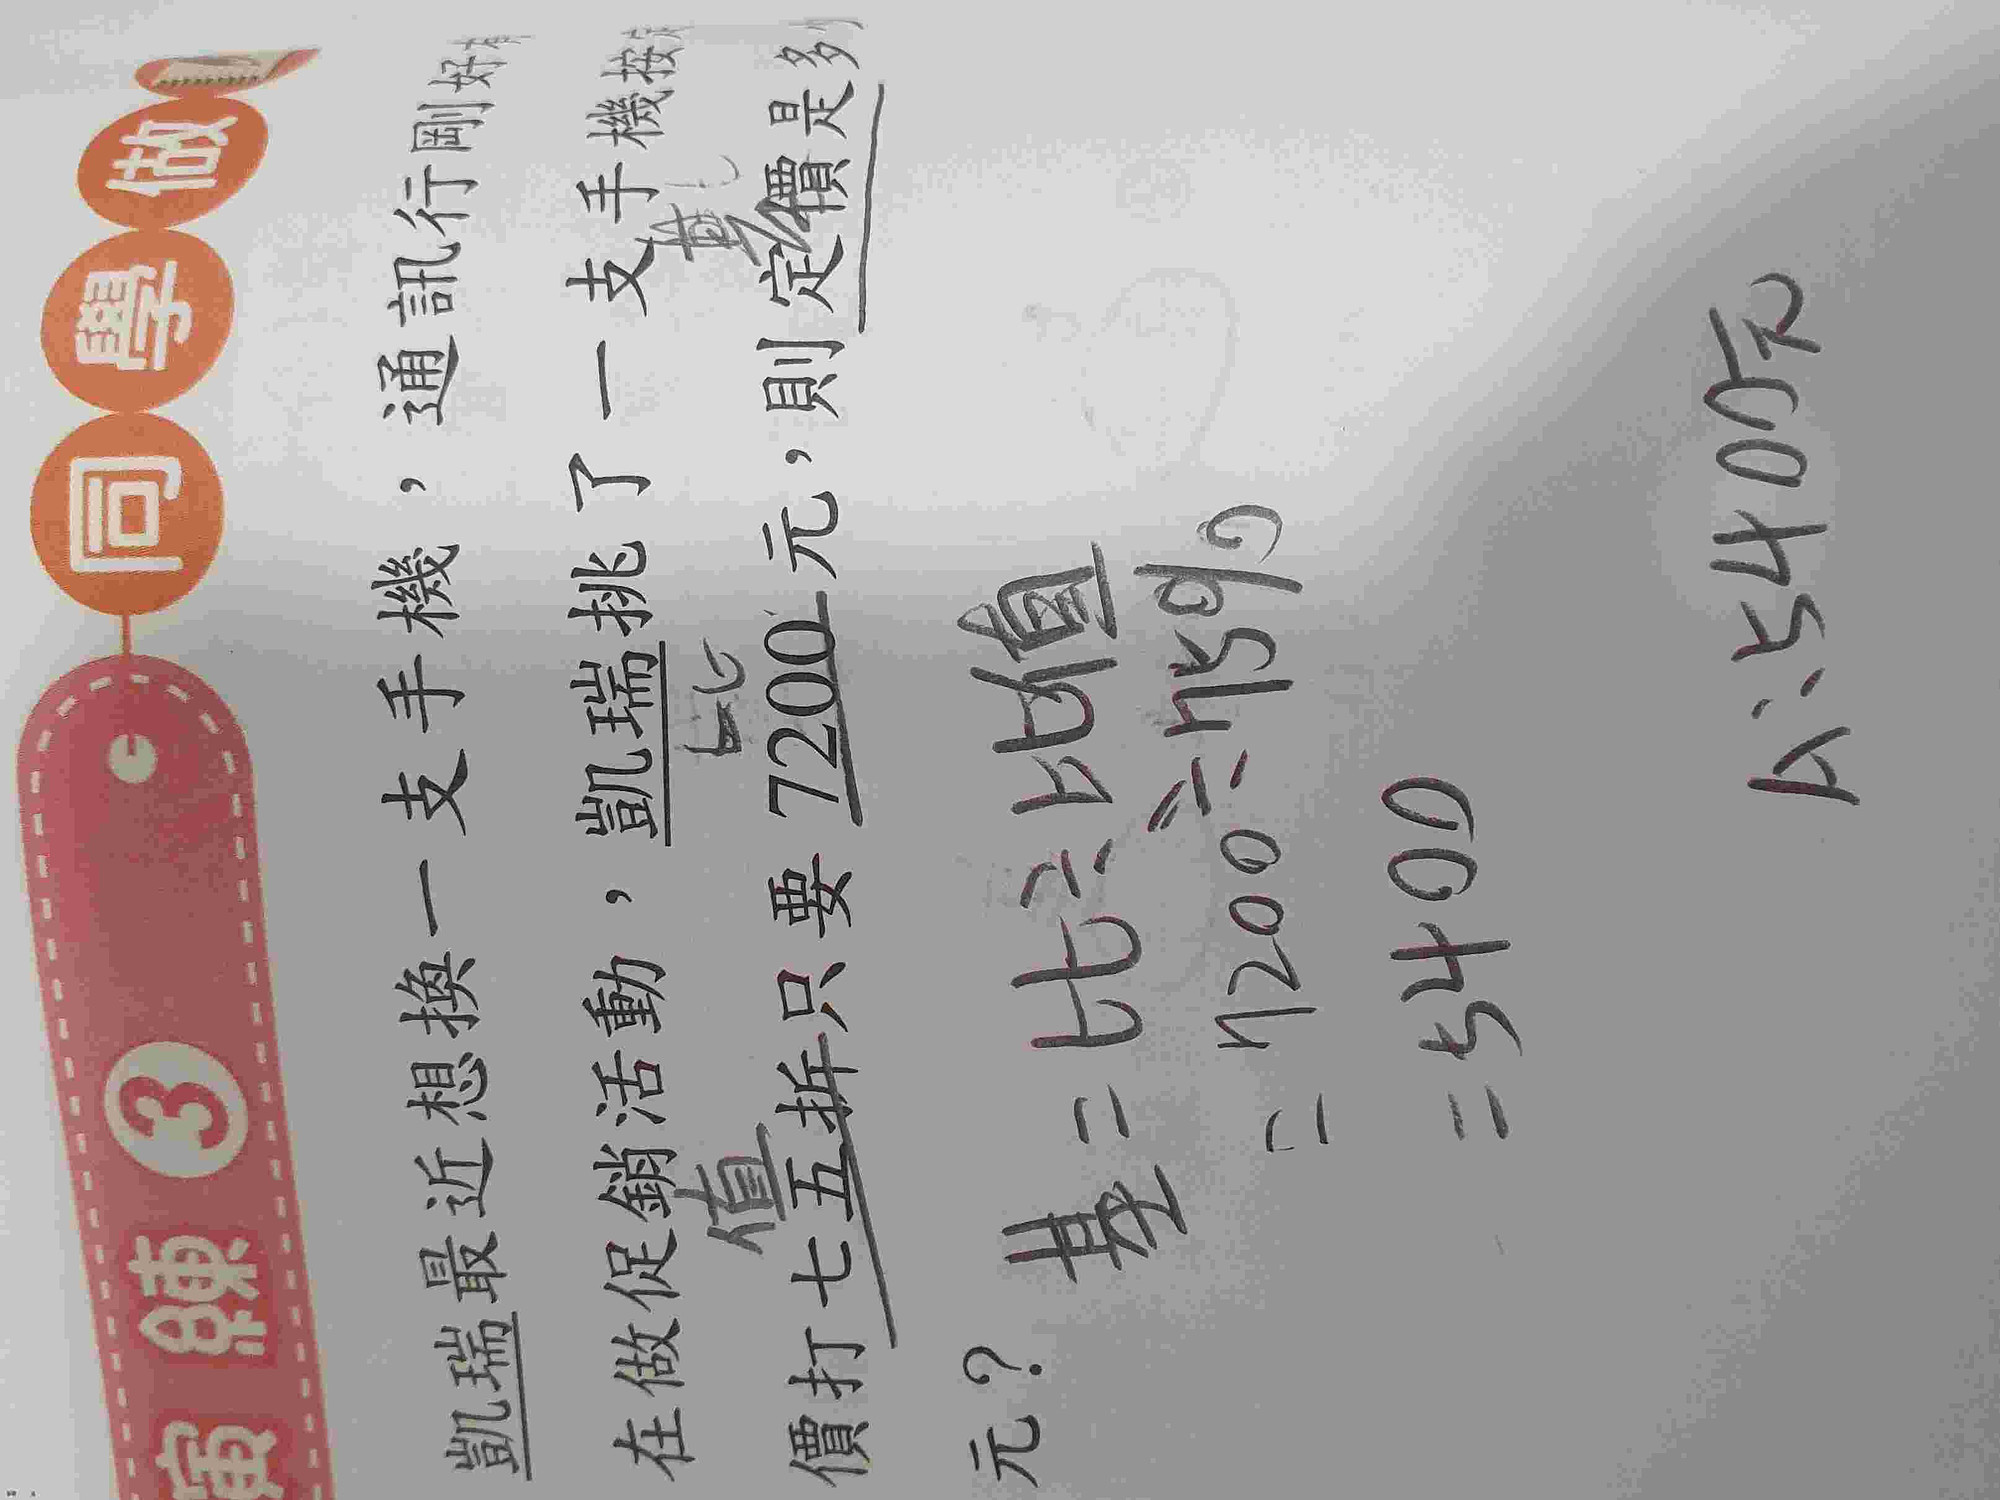 演練 3 同學做
凱瑞最近想換一支手機，通訊行剛好有
在做促銷活動，凱瑞挑了一支手機按定
值 比 基
價打七五折只要 7200 元，則定價是多
元？
基=比÷比值
=7200÷75%
=5400
A:5400元